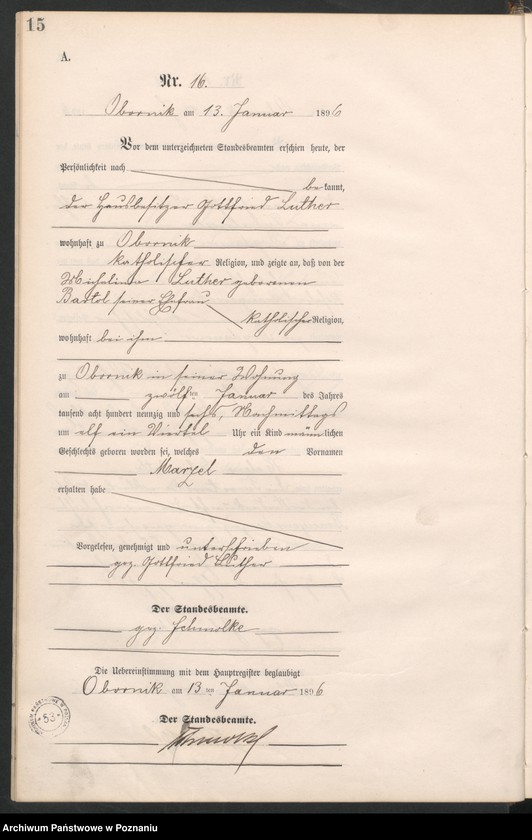 15
A.
Nr. 16.
Obornik am 13. Januar 1896
Vor dem unterzeichneten Standesbeamten erschien heute, der
Persönlichkeit nach
bekannt,
der Hausbesitzer Gottfried Luther
wohnhaft zu Obornik
katholischer Religion, und zeigte an, daß von der
Michalina Luther geborenen
Bartol seiner Ehefrau
katholischer Religion,
wohnhaft bei ihm
zu Obornik in seiner Wohnung
am zwölften Januar des Jahres
tausend acht hundert neunzig und sechs, Nachmittags
um elf ein Viertel Uhr ein Kind männlichen
Geschlechts geboren worden sei, welches den Vornamen
Marzel
erhalten habe
Vorgelesen, genehmigt und unterschrieben
gez. Gottfried Luther
Der Standesbeamte.
gez. Schmolke
Die Uebereinstimmung mit dem Hauptregister beglaubigt
Obornik am 13ten Januar 1896
Der Standesbeamte.
Schmolke
53
Archiwum Państwowe w Poznaniu